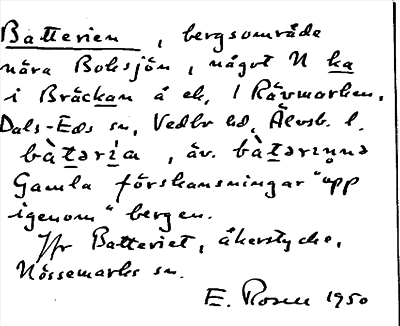 Batterien, bergsområde
nära Boksjön, något N ka
i Bräckan å ek, / Rävmarken,
Dals-Eds sn, Vedbo hd, Älvsb. l.
bàtəri̇a, äv. bàtəriṇnə
Gamla förskansningar "upp
igenom" bergen.
Jfr Batteriet, åkerstycke,
Nössemarks sn.
E. Rosen 1950